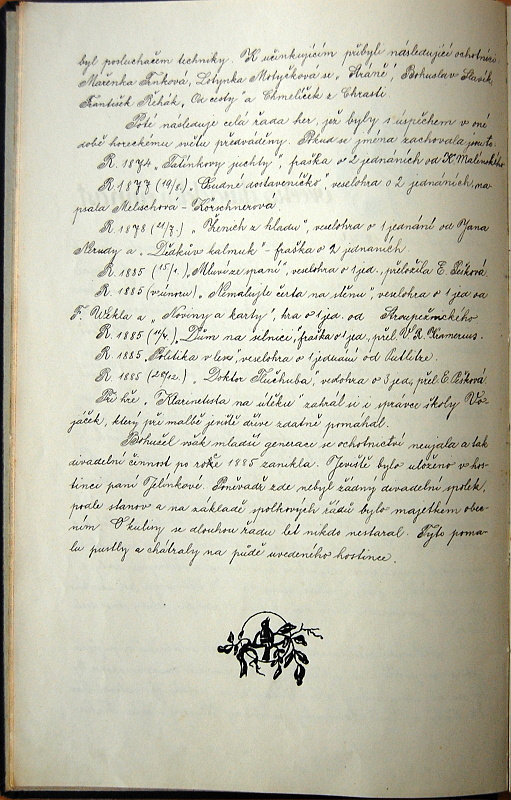 byl posluchačem techniky. K účinkujícím přibyli následující ochotníci
Mařenka Frňková, Lotynka Motyčková se „Stráně", Bohuslav Slavík,
František Řehák, „Od cesty" a Chmelíček z Chrasti
Poté následuje celá řada her, jež byly s úspěchem v oné
době horeckému světu předváděny. Pokud se jména zachovala jsou to:
R. 1874 „Tatínkovy juchty", fraška o 2 jednáních od H. Malinského
R 1877 (19/8.) „Osudné dostaveníčko" veselohra o 2 jednáních, na-
psala Melschová - Körschnerová.
R. 1878 (21/7.) „Ženich z hladu", veselohra o 1 jednání od Jana
Nerudy a „Dědkův kalmuk" - fraška o 2 jednáních.
R. 1885 (15/1.) „Mluví ze spaní", veselohra o 1 jed., přeložila E. Pešková
R. 1885 (v únoru) „Nemalujte čerta na stěnu", veselohra o 1 jed od
F. Wehla a „Noviny a karty", hra o 1 jed. od Stroupežnického
R. 1885 (11/4.) „Dům na silnici" fraška o 1 jed., přel. V. R. Kramerius.
R. 1885 „Politika v lese", veselohra o 1 jednání od Putlitze.
R 1885 (26/12.) „Doktor Hluchuba", veselohra o 3 jed., přel. E. Pešková
Při hře „Klarinetista na útěku" zahrál si i správce školy Vo-
jáček, který při malbě jeviště dříve zdatně pomáhal.
Bohužel však mladší generace se ochotnictví neujala a tak
divadelní činnost po roku 1885 zanikla. Jeviště bylo uloženo v hos-
tinci paní Jelínkové. Poněvadž zde nebyl žádný divadelní spolek,
podle stanov a na základě spolkových řádů bylo majetkem obec-
ním O kulisy se dlouhou řadu let nikdo nestaral. Tyto poma-
lu pustly a chátraly na půdě uvedeného hostince.